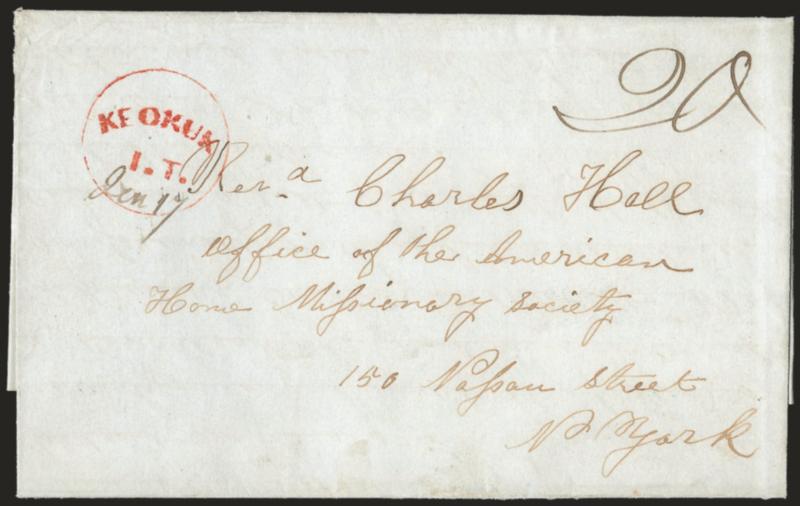 20
KEOKUK
I. T.
Jan 17
Rev.d Charles Hall
Office of the American
Home Missionary Society
150 Nassau Street
N York